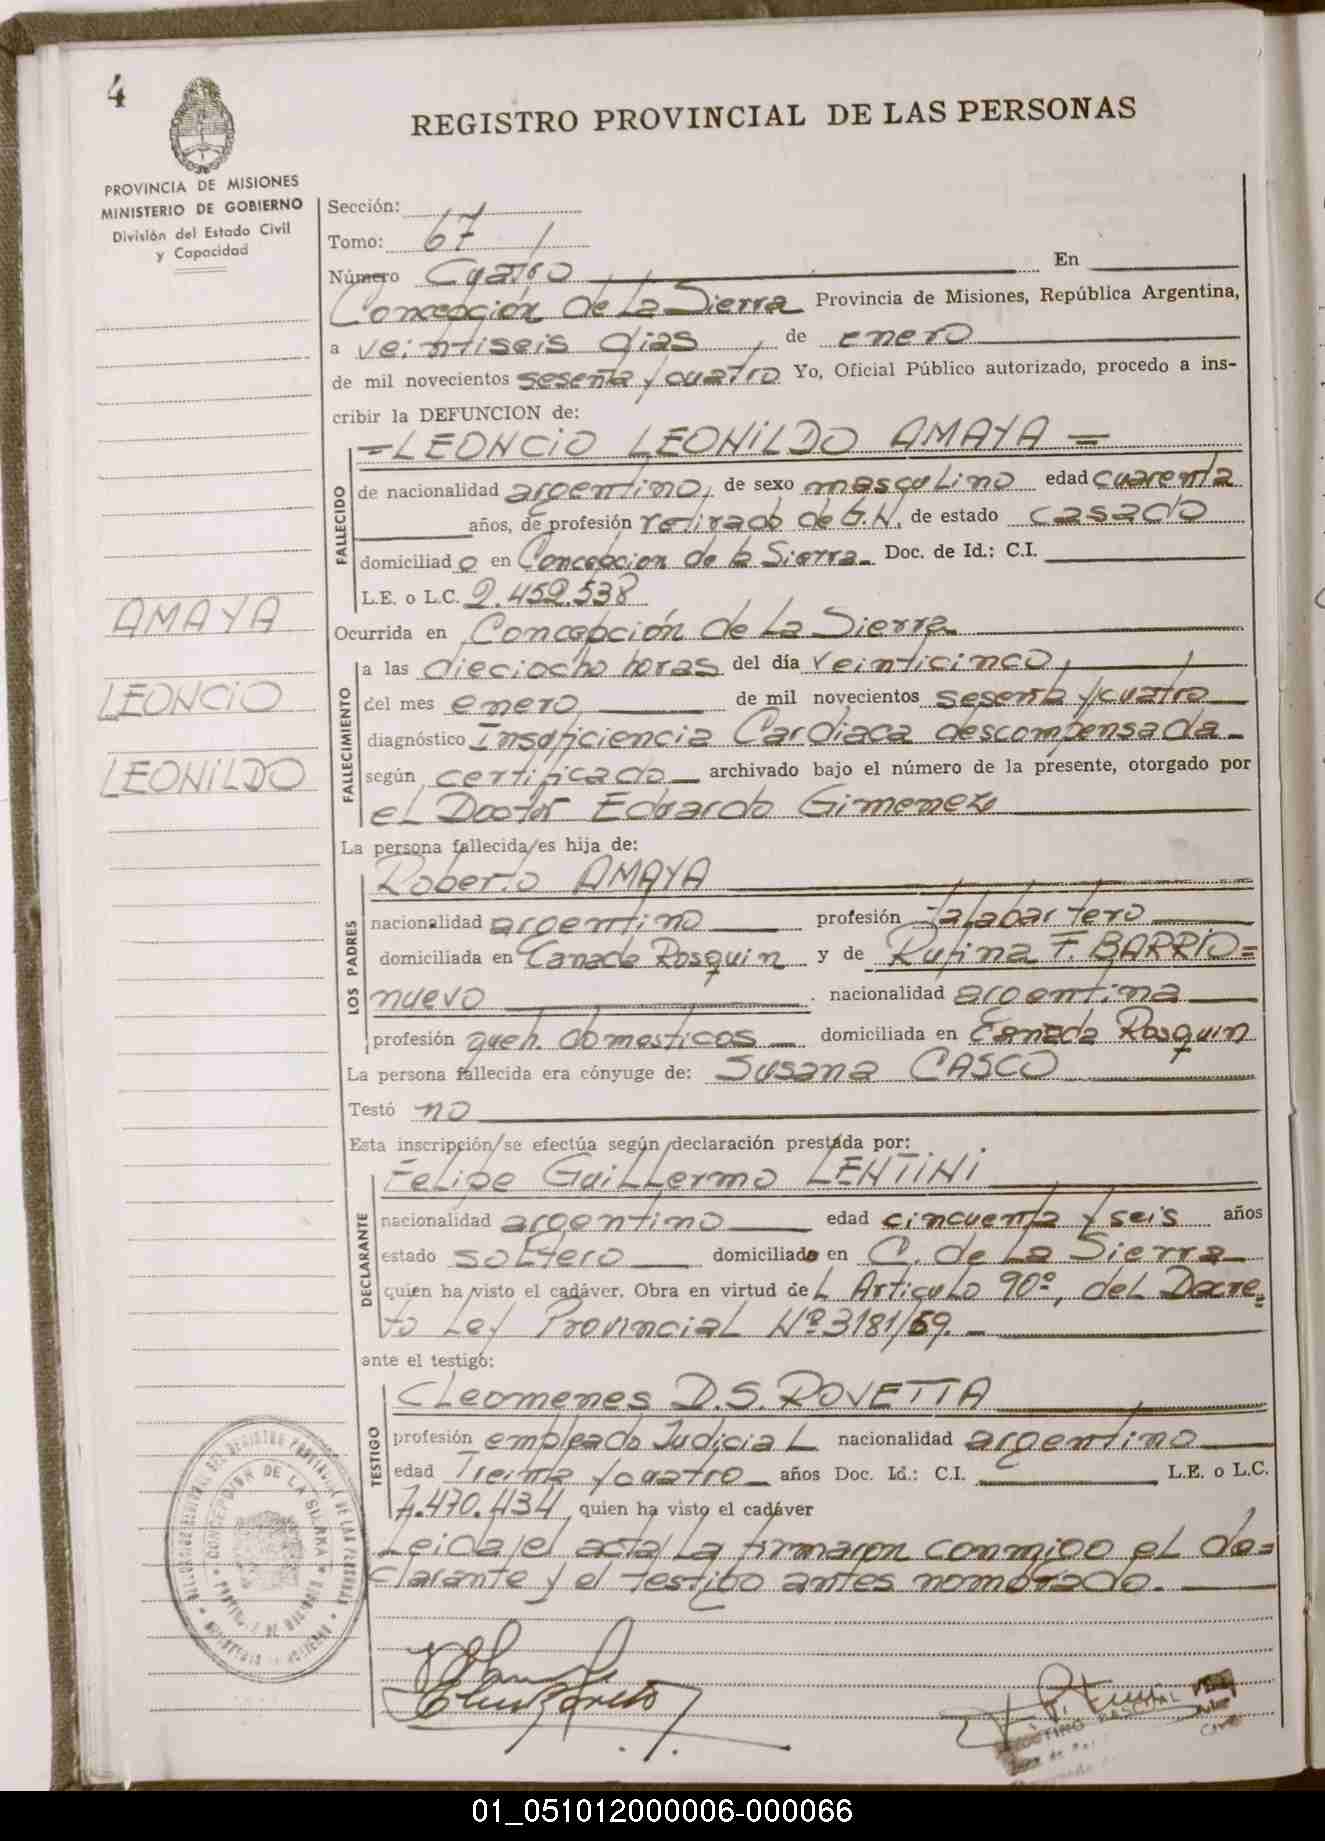 4
REGISTRO PROVINCIAL DE LAS PERSONAS
PROVINCIA DE MISIONES
MINISTERIO DE GOBIERNO
División del Estado Civil
y Capacidad
Sección:
Tomo: 67
Número Cuatro En
Concepción de La Sierra Provincia de Misiones, República Argentina,
a veintiseis dias de enero
de mil novecientos sesenta y cuatro Yo, Oficial Público autorizado, procedo a ins-
cribir la DEFUNCION de:
=LEONCIO LEONILDO AMAYA=
FALLECIDO
de nacionalidad argentino, de sexo masculino edad cuarenta
años, de profesión retirado de G.N. de estado casado
domiciliado en Concepcion de la Sierra. Doc. de Id.: C.I.
L.E. o L.C. 2.452.538
AMAYA
LEONCIO
LEONILDO
Ocurrida en Concepción de La Sierra
FALLECIMIENTO
a las dieciocho horas del día veinticinco,
del mes enero de mil novecientos sesenta y cuatro
diagnóstico Insuficiencia Cardiaca descompensada.
según certificado archivado bajo el número de la presente, otorgado por
el Doctor Eduardo Gimenez
La persona fallecida es hija de:
LOS PADRES
Roberto AMAYA
nacionalidad argentino profesión Talabartero
domiciliada en Canada Rosquin y de Rufina F. BARRIO=
nuevo nacionalidad argentina
profesión queh. domesticos domiciliada en Canada Rosquin
La persona fallecida era cónyuge de: Susana CASCO
Testó no
Esta inscripción se efectúa según declaración prestada por:
DECLARANTE
Felipe Guillermo LENTINI
nacionalidad argentino edad cincuenta y seis años
estado soltero domiciliado en C. de La Sierra
quien ha visto el cadáver. Obra en virtud del Articulo 90º, del Decre=
to Ley Provincial Nº 3181/59.
ante el testigo:
TESTIGO
Cleomenes D.S. ROVETTA
profesión empleado Judicial nacionalidad argentino
edad Treinta y cuatro años Doc. Id.: C.I. L.E. o L.C.
7.470.434, quien ha visto el cadáver
Leida el acta La firmaron conmigo el de=
clarante y el testigo antes nombrado.
CONCEPCION DE LA SIERRA
01_051012000006-000066